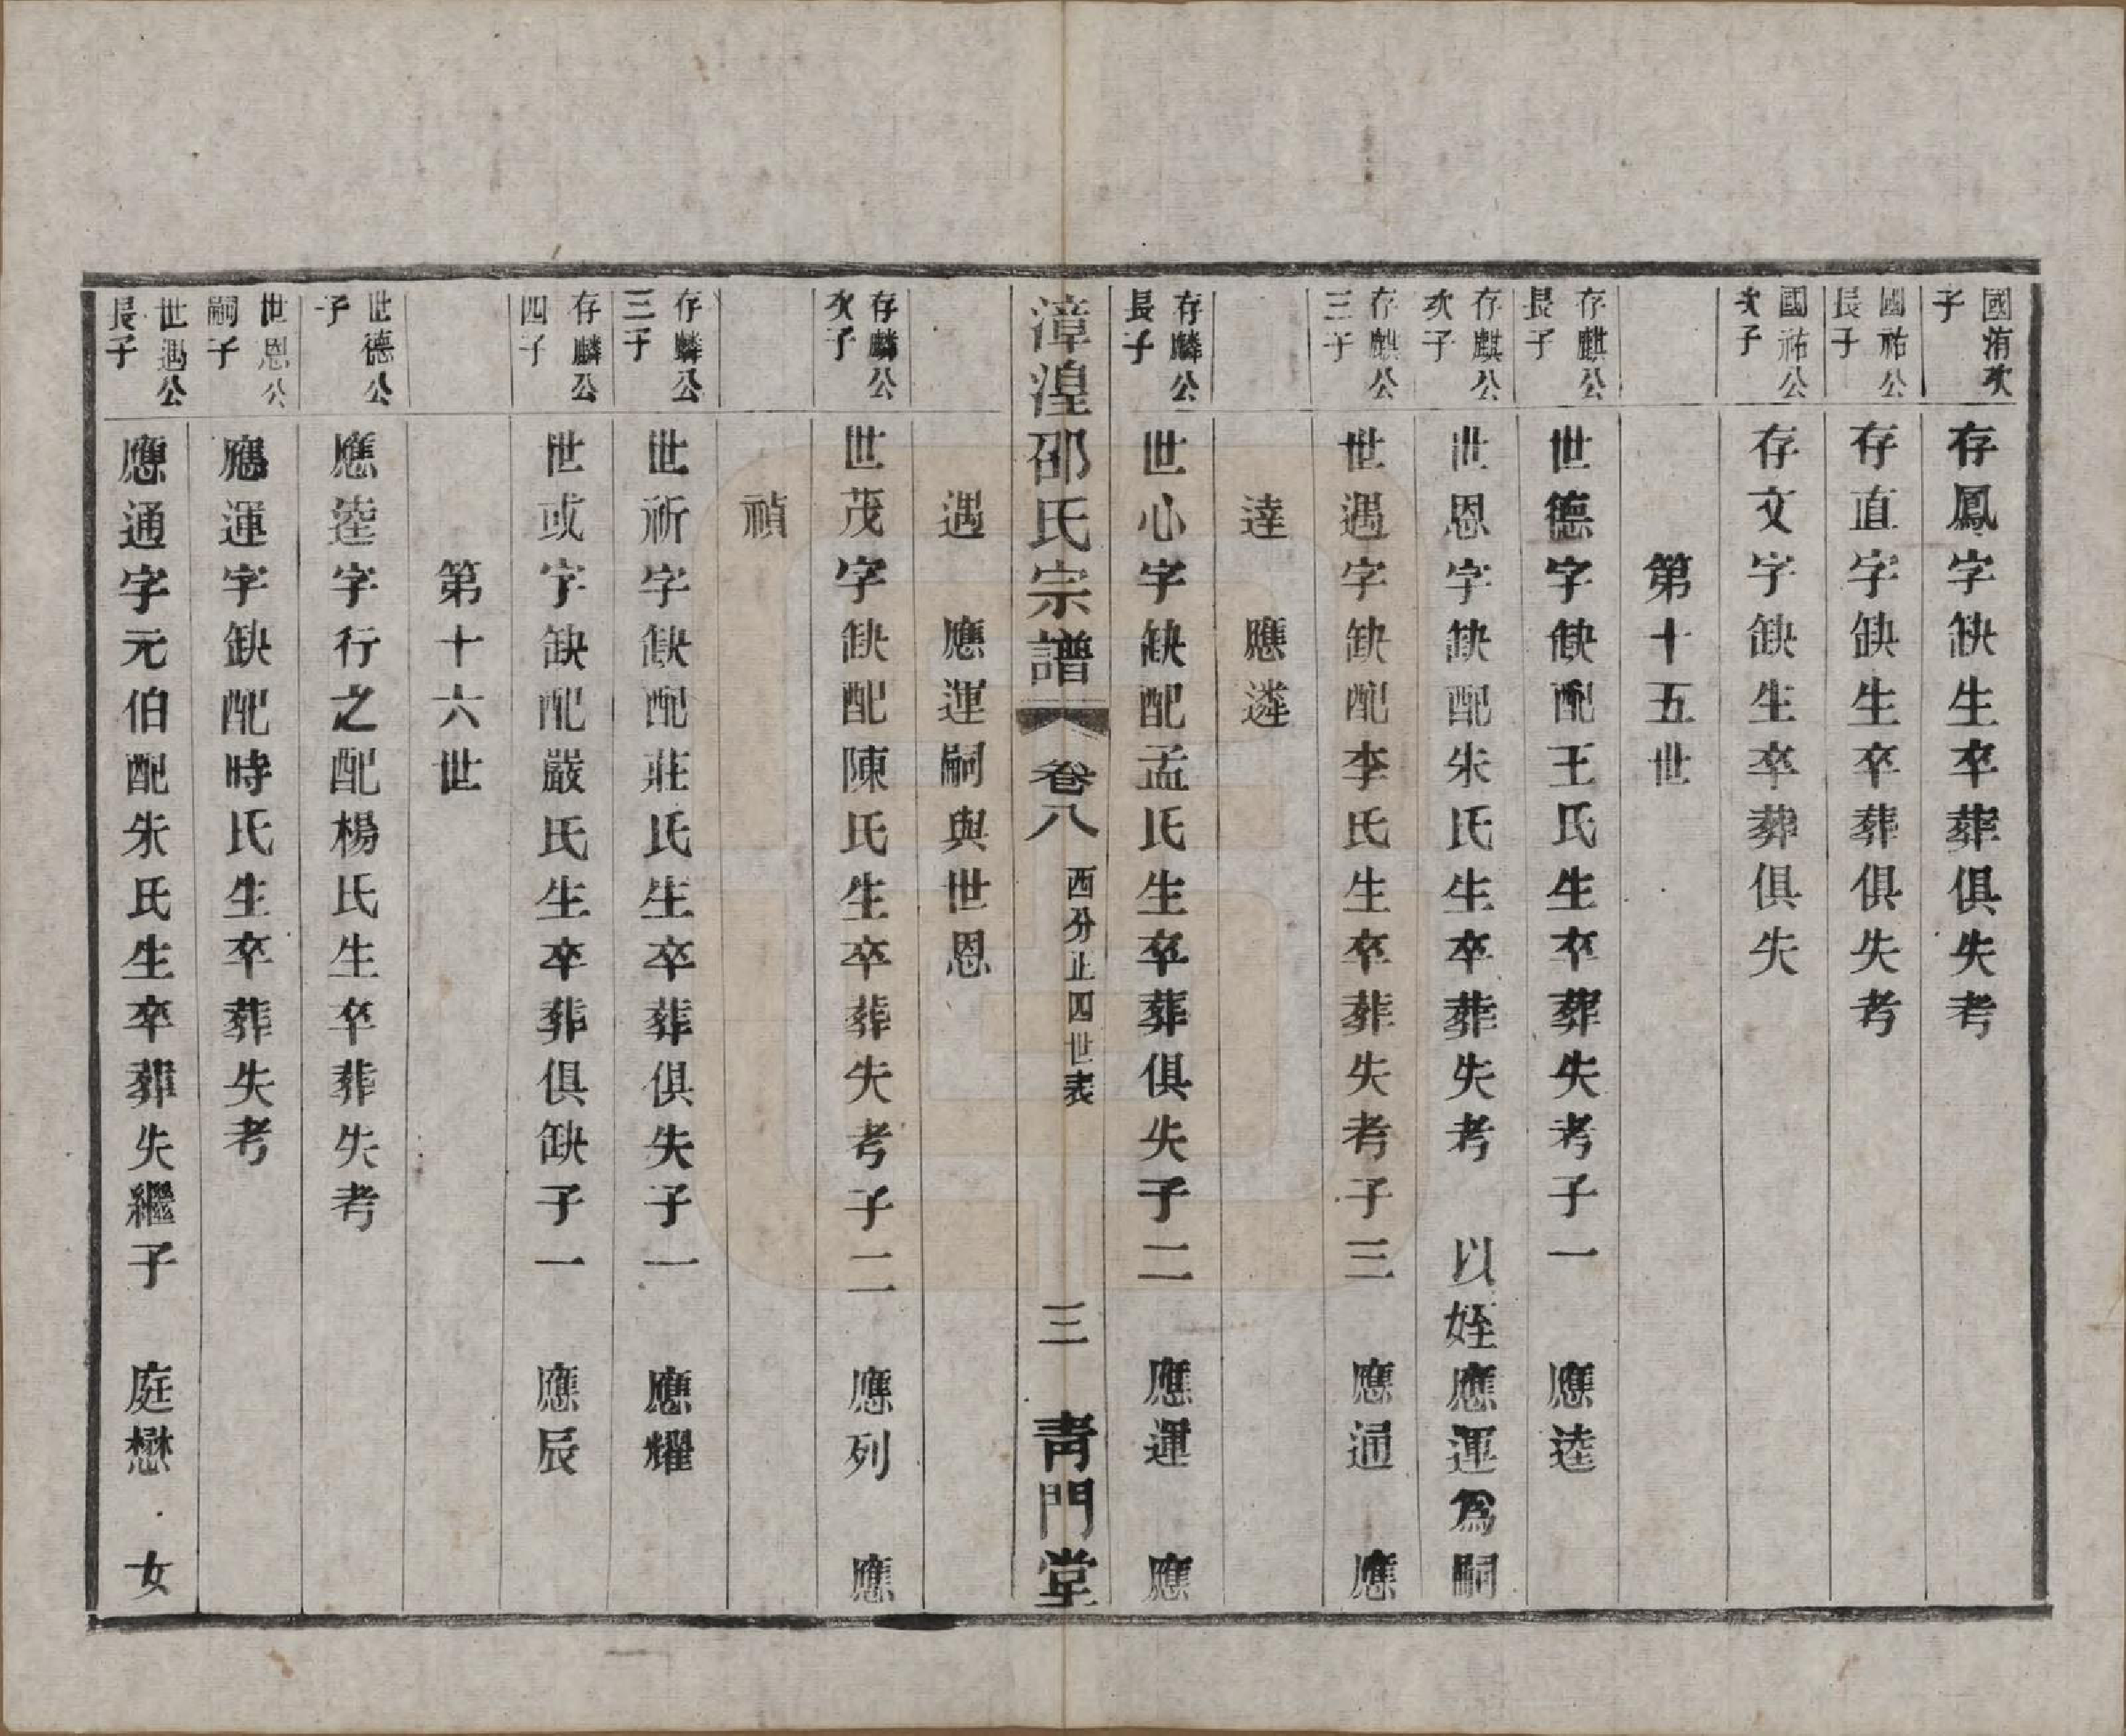 國洧次子
存鳳字缺生卒葬俱失考
國祐公長子
存直字缺生卒葬俱失考
國祐公次子
存文字缺生卒葬俱失
第十五世
存麒公長子
世德字缺配王氏生卒葬失考子一　應逵
存麒公次子
世恩字缺配朱氏生卒葬失考　以姪應運爲嗣
存麒公三子
世遇字缺配李氏生卒葬失考子三　應通　應
達　應遴
存麟公長子
世心字缺配孟氏生卒葬俱失子二　應運　應
漳湟邵氏宗譜　卷八　西分止四世表　三　青門堂
遇　應運嗣與世恩
存麟公次子
世茂字缺配陳氏生卒葬失考子二　應列　應
禎
存麟公三子
世祈字缺配莊氏生卒葬俱失子一　應耀
存麟公四子
世或字缺配嚴氏生卒葬俱缺子一　應辰
第十六世
世德公子
應逵字行之配楊氏生卒葬失考
世恩公嗣子
應運字缺配時氏生卒葬失考
世遇公長子
應通字元伯配朱氏生卒葬失繼子　庭懋　女